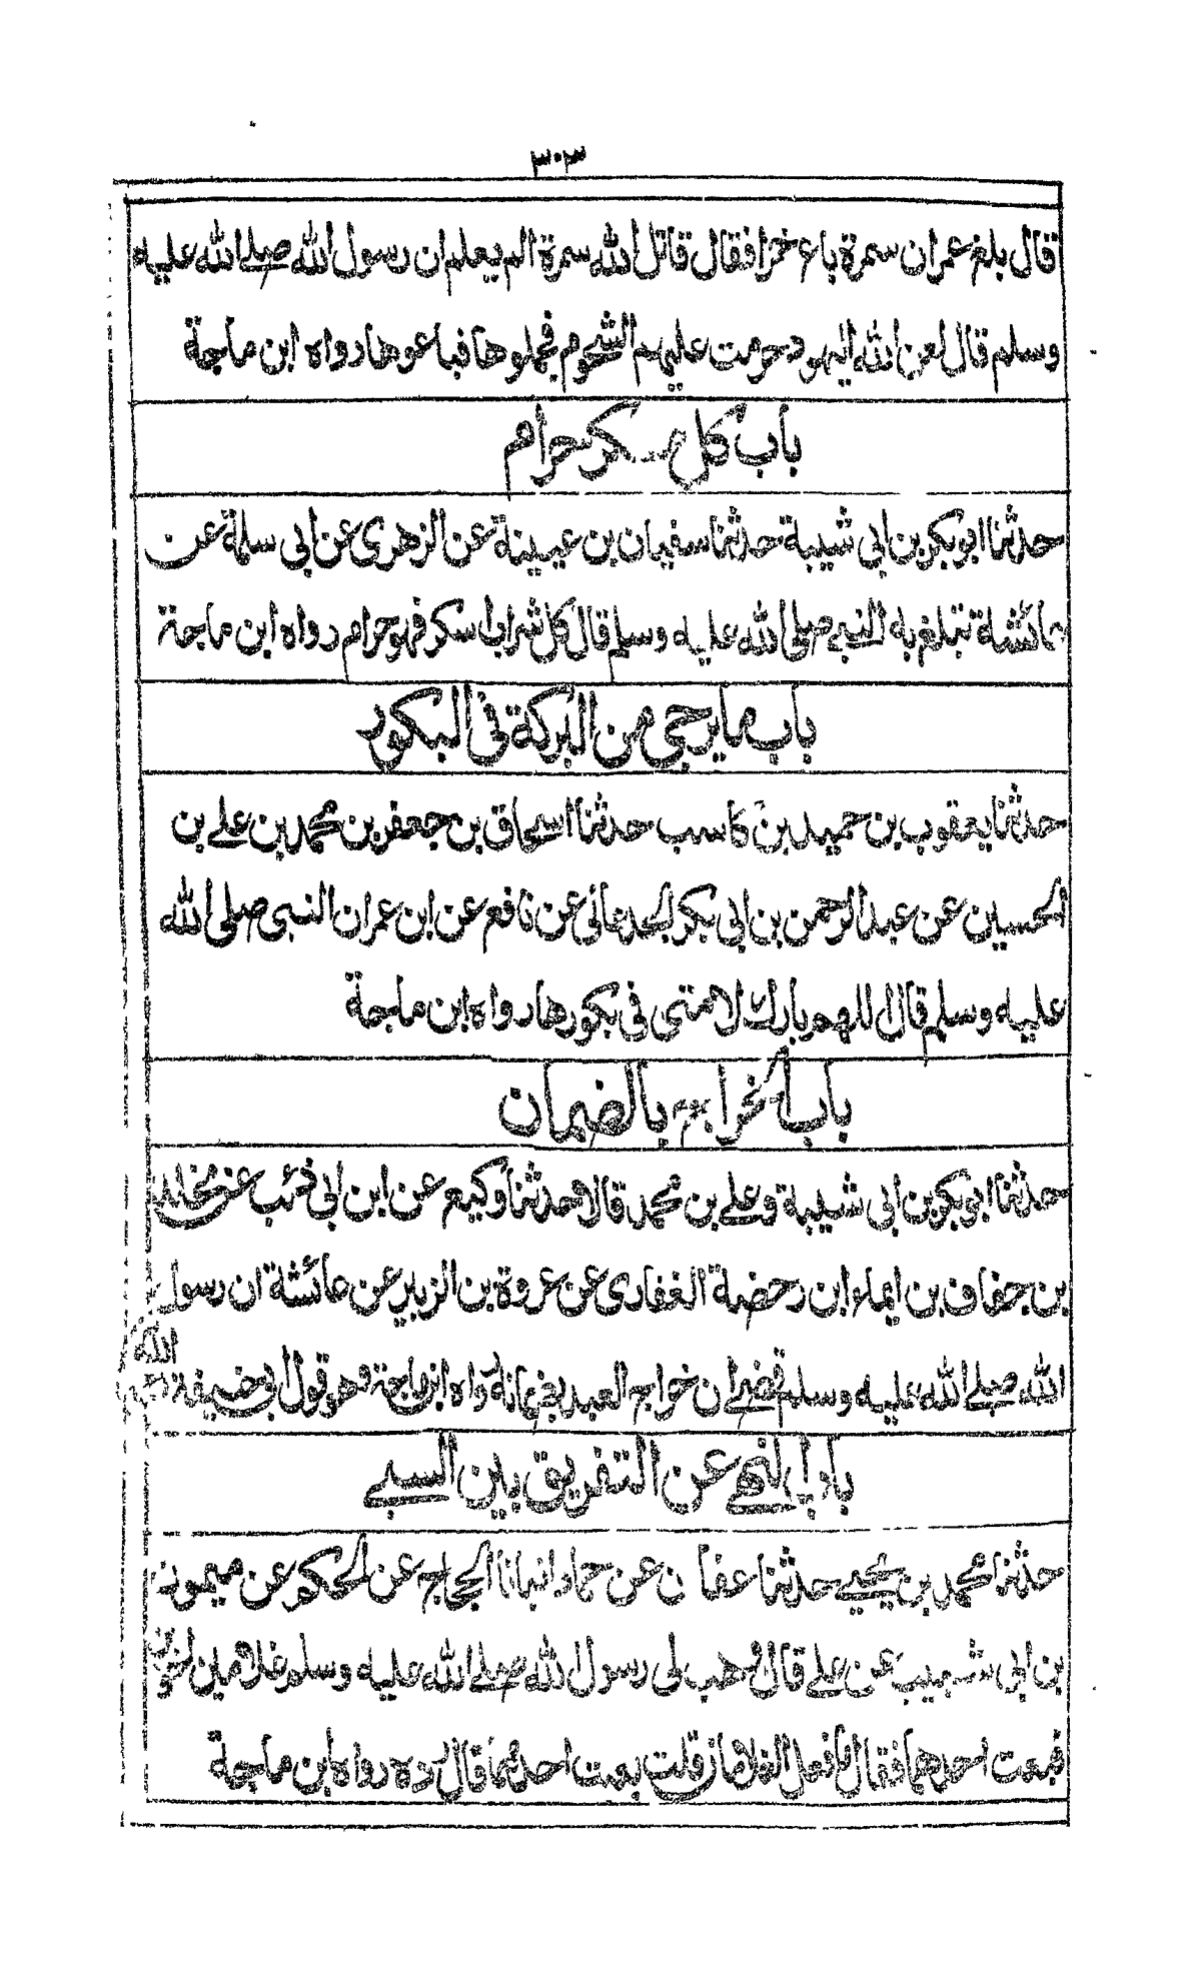 ٣٠٣
قال بلغ عمران سمرة باع خمرا فقال قاتل الله سمرة الم يعلم ان رسول الله صلى الله عليه
وسلم قال لعن الله اليهود حرمت عليهم الشحوم فجملوها فباعوها رواه ابن ماجة
باب كل مسكر حرام
حدثنا ابو بكر بن ابى شيبة حدثنا سفيان بن عيينة عن الزهرى عن ابى سلمة عن
عائشة تبلغ به النبى صلى الله عليه وسلم قال كل شراب اسكر فهو حرام رواه ابن ماجة
باب ما يرجى من البركة فى البكور
حدثنا يعقوب بن حميد بن كاسب حدثنا اسحاق بن جعفر بن محمد بن على بن
الحسين عن عبد الرحمن بن ابى بكر الجدعانى عن نافع عن ابن عمران النبى صلى الله
عليه وسلم قال اللهم بارك لامتى فى بكورها رواه ابن ماجة
باب الخراج بالضمان
حدثنا ابو بكر بن ابى شيبة وعلى بن محمد قالا حدثنا وكيع عن ابن ابى ذئب عن مخلد
بن خفاف بن ايماء ابن رحضة الغفارى عن عروة بن الزبير عن عائشة ان رسول
الله صلى الله عليه وسلم قضى ان خراج العبد بضمانه رواه ابن ماجة وهو قول ابى حنيفة
باب النهى عن التفريق بين السبى
حدثنا محمد بن يحيى حدثنا عفان عن حماد انبانا الحجاج عن الحكم عن ميمون
بن ابى شبيب عن على قال وهب لى رسول الله صلى الله عليه وسلم غلامين اخوين
فبعت احدهما فقال ما فعل الغلامان قلت بعت احدهما قال رده رواه ابن ماجة